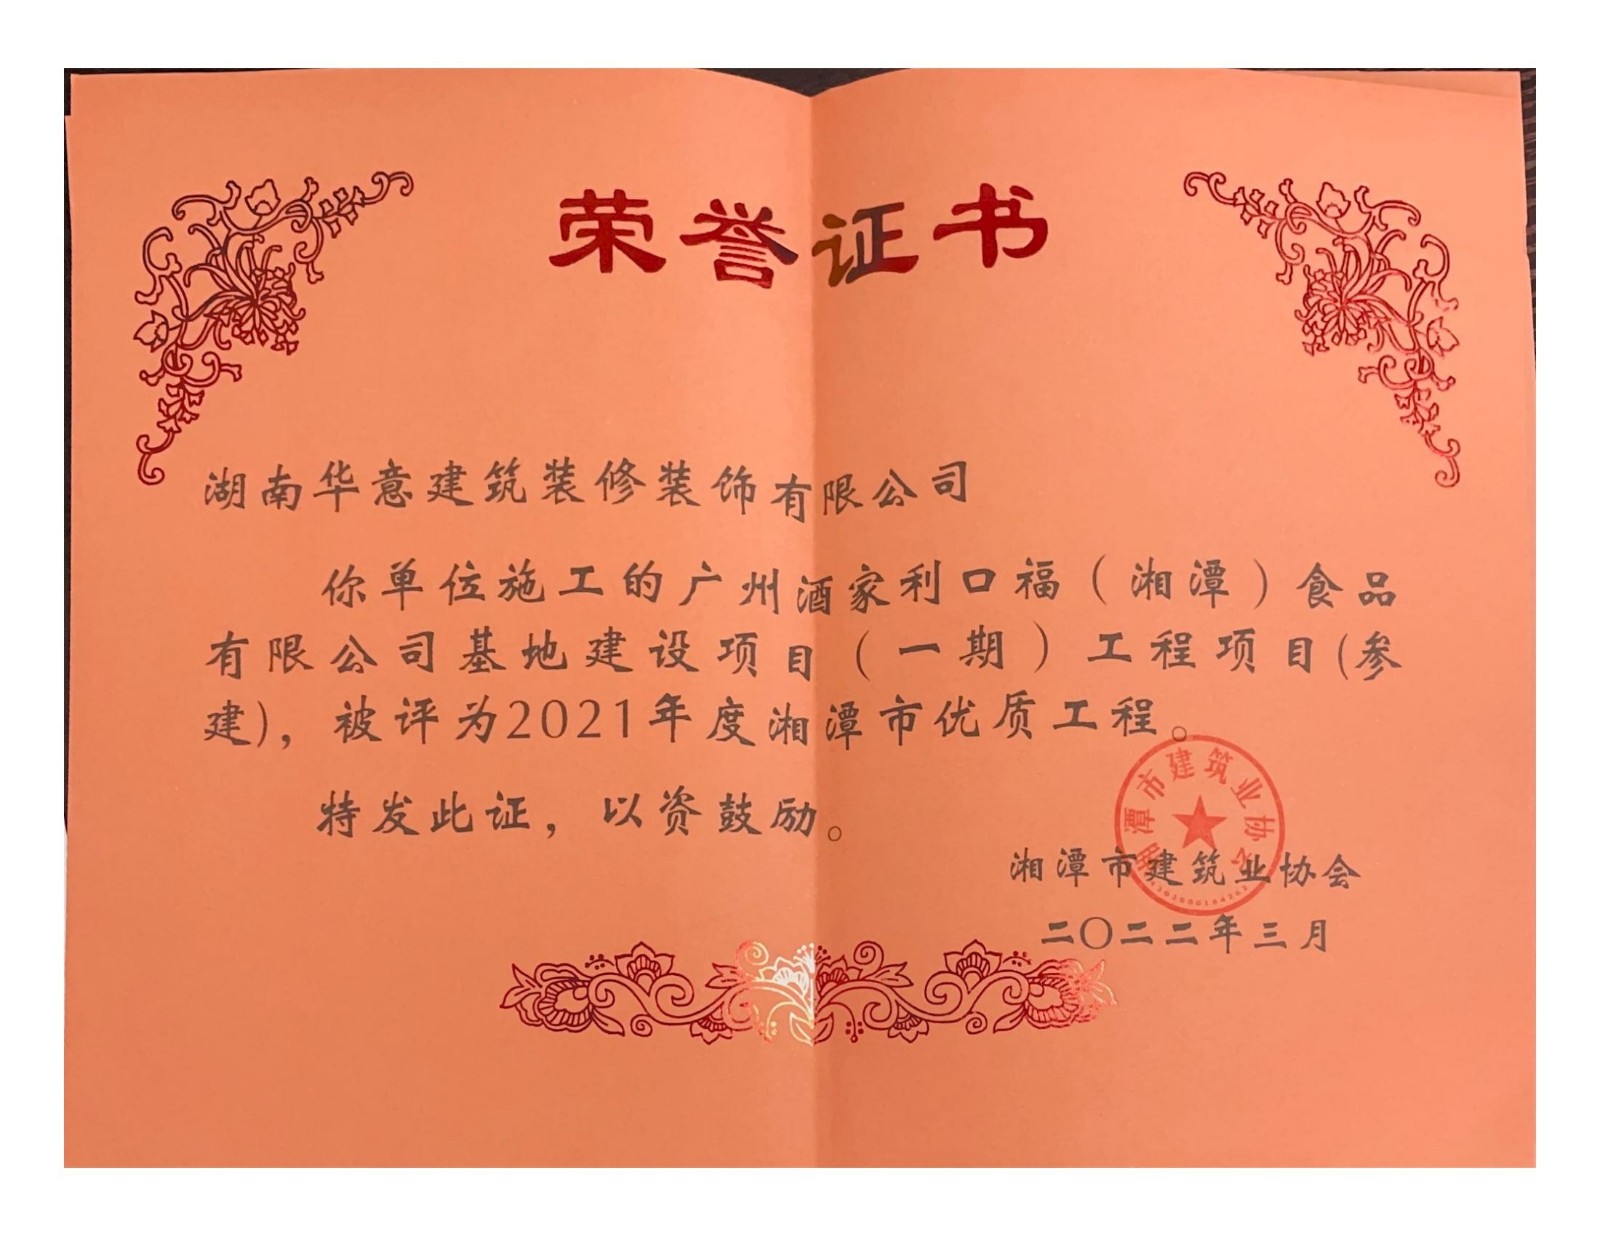 荣誉证书
湖南华意建筑装修装饰有限公司
你单位施工的广州酒家利口福（湘潭）食品
有限公司基地建设项目（一期）工程项目(参
建)，被评为2021年度湘潭市优质工程。
特发此证，以资鼓励。
湘潭市建筑业协会
湘潭市建筑业协会
二〇二二年三月